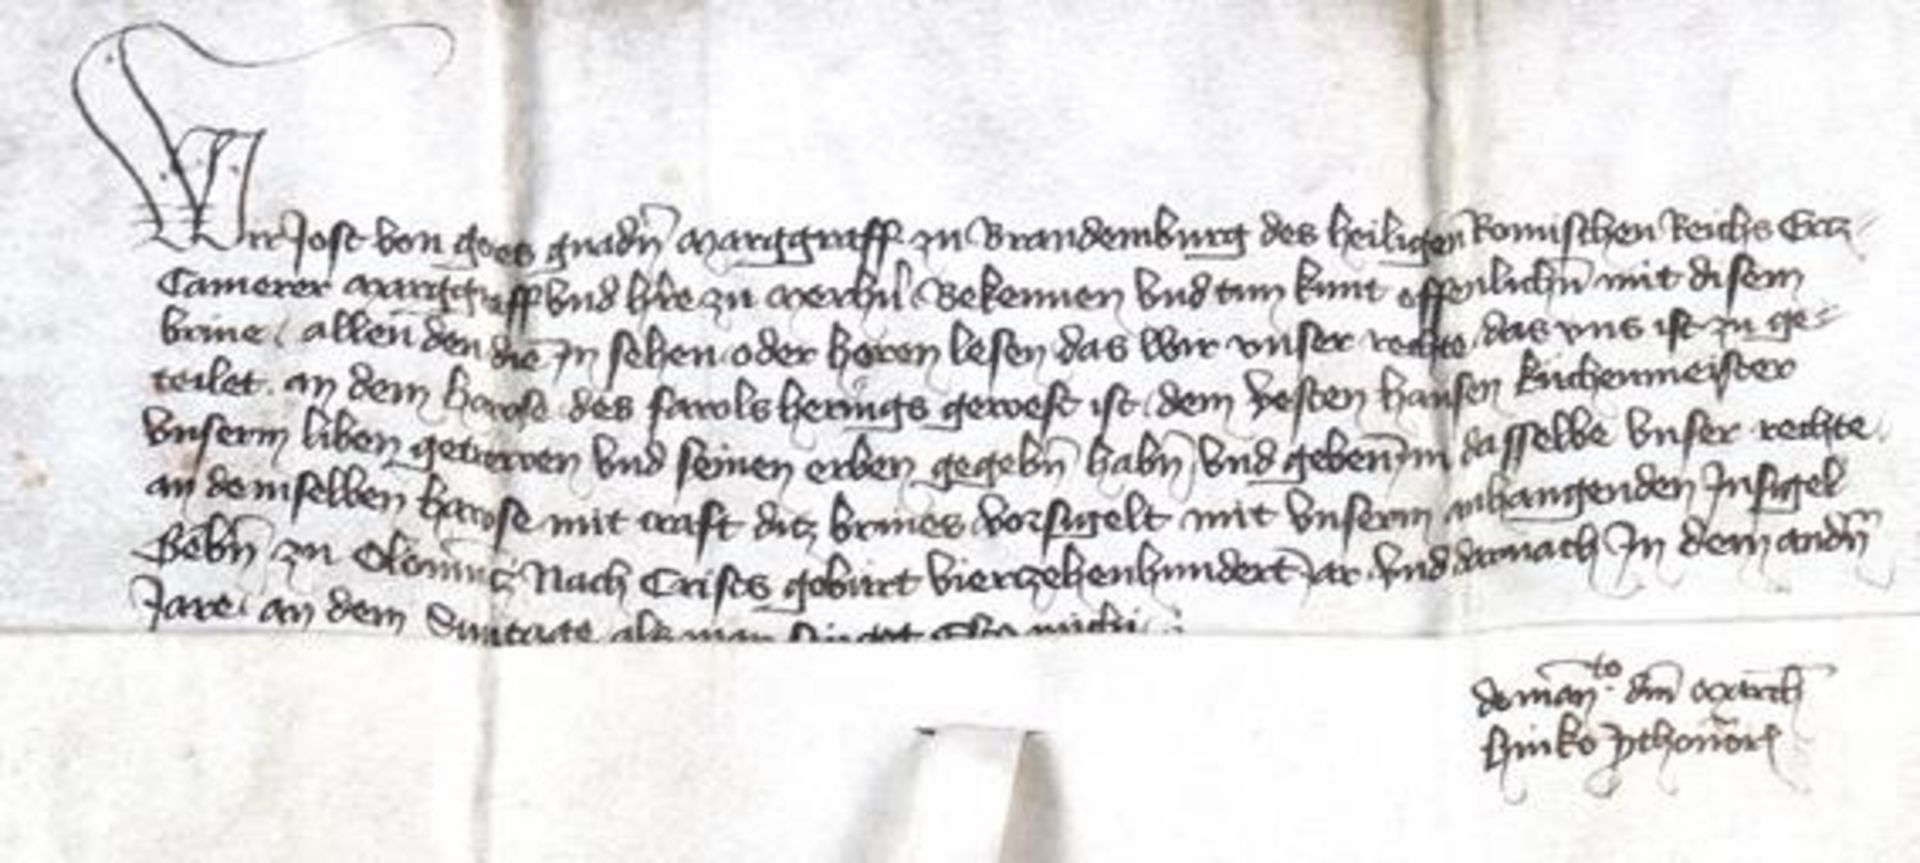 Wir Jost von gots gnadn̄ Marggraff zu Brandemburg des heiligen Romischen Reichs Ertz
Camerer Marggraff vnd h're zu Merh'n Bekennen vnd tun kunt offenlichn̄ mit disem
briue allen den die In sehen oder horen lesen das Wir vnser rechte das vns ist zu ge-
teilet an dem hawse des sarols herings gewest ist dem vesten hansen kuchenmeister
vnserm liben getrewen vnd seinen erben gegebn̄ habn̄ vnd geben Im dasselbe vnser rechte
an demselben hawse mit craft ditz briues vorsigelt mit vnserm anhangenden Insigel
Gebn̄ zu Olomuncz Nach Crists geburt vierzehenhundert Jar vnd dornach In dem andn̄
Jare an dem Suntage als man singet Esto michi
de man^to dn̄i March
hinko